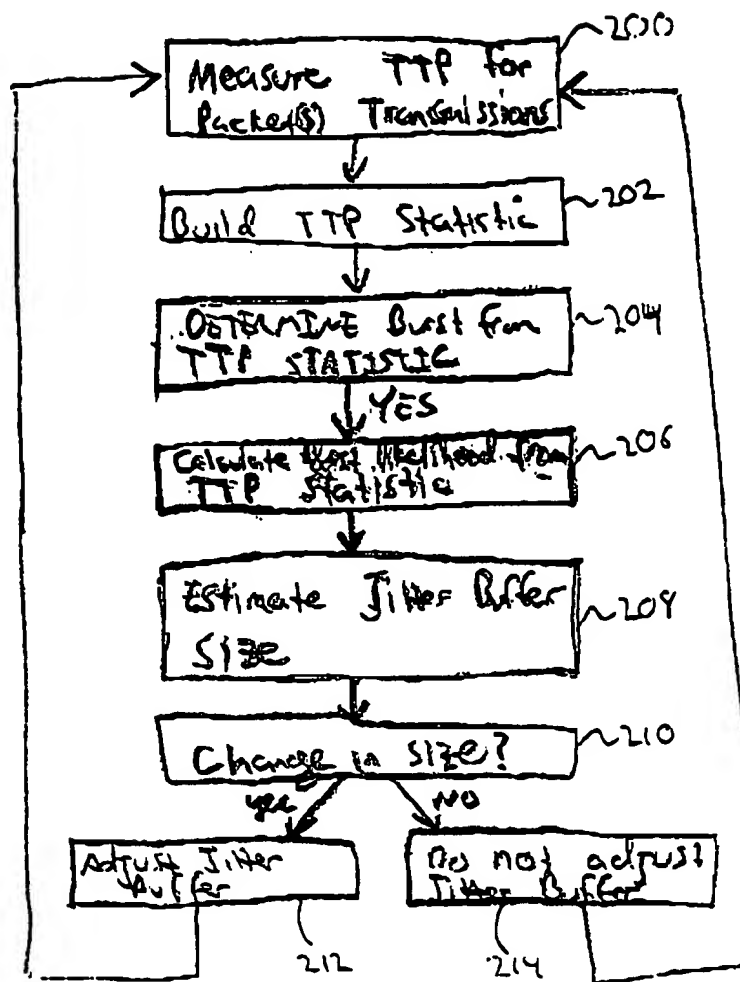 200
Measure TTP for
Packet(s) Transmissions
Build TTP Statistic
202
DETERMINE Burst from
TTP STATISTIC
204
YES
Calculate likelihood from
TTP Statistic
206
Estimate Jitter Buffer
Size
208
Change in size?
210
yes
NO
Adjust Jitter
Buffer
Do not adjust
Jitter Buffer
212
214